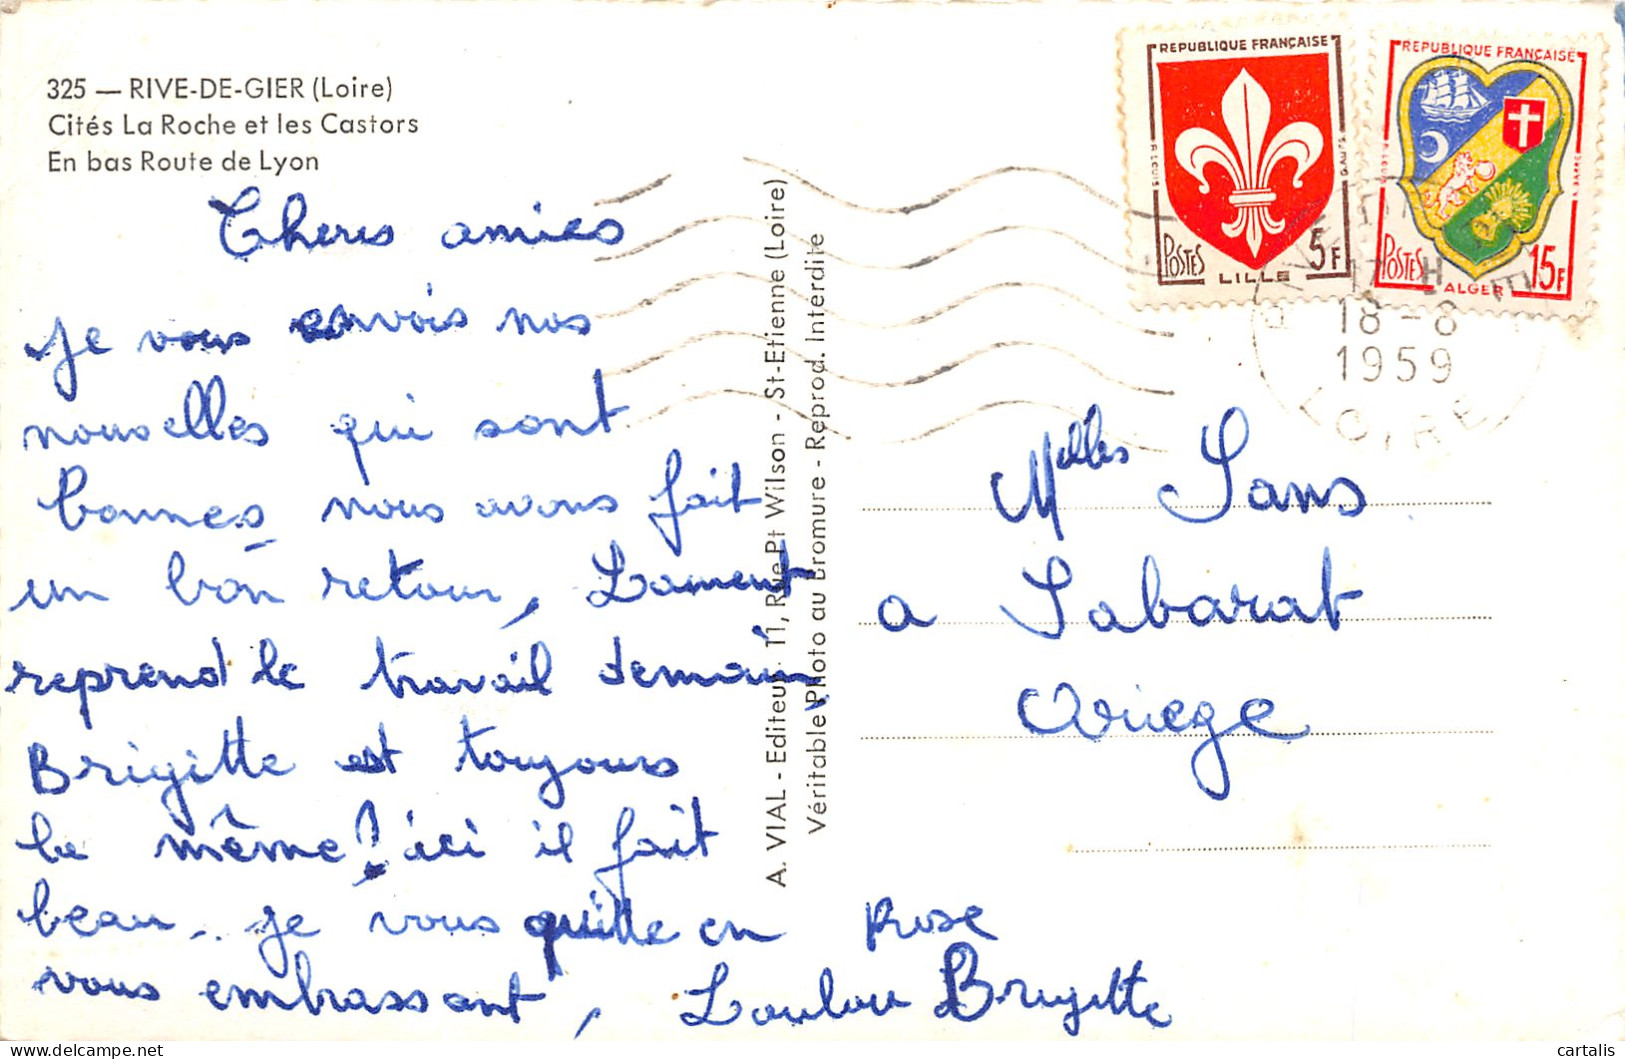 325 — RIVE-DE-GIER (Loire)
Cités La Roche et les Castors
En bas Route de Lyon
Cheres amies
Je vous envois nos
nouvelles qui sont
bonnes nous avons fait
un bon retour, Laurent
reprend le travail demain,
Brigitte est toujours
la même! ici il fait
beau.. je vous quitte en
vous embrassant, Loulou Brigitte
Rose
A. VIAL - Editeur 11, Rue Pt Wilson - St-Etienne (Loire)
Véritable Photo au bromure - Reprod. Interdite
REPUBLIQUE FRANÇAISE
POSTES
5F
LILLE
REPUBLIQUE FRANÇAISE
POSTES
15F
ALGER
18-8
1959
LOIRE
Melles Sans
a Sabarat
Ariege
cartalis